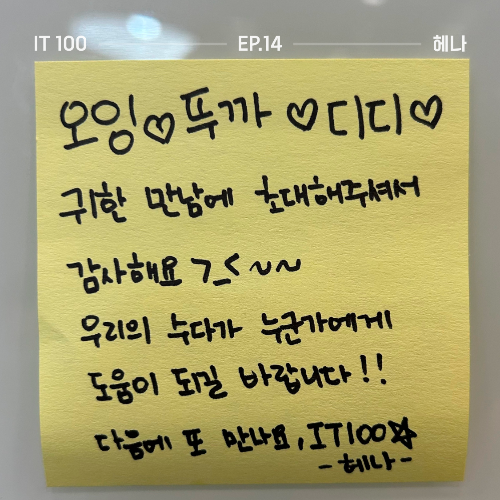 IT 100 EP.14 헤나
오잉♡뚜까 ♡디디♡
귀한 만남에 초대해주셔서
감사해요 ㄱ_< ~~
우리의 수다가 누군가에게
도움이 되길 바랍니다!!
다음에 또 만나요, IT100☆
-헤나-